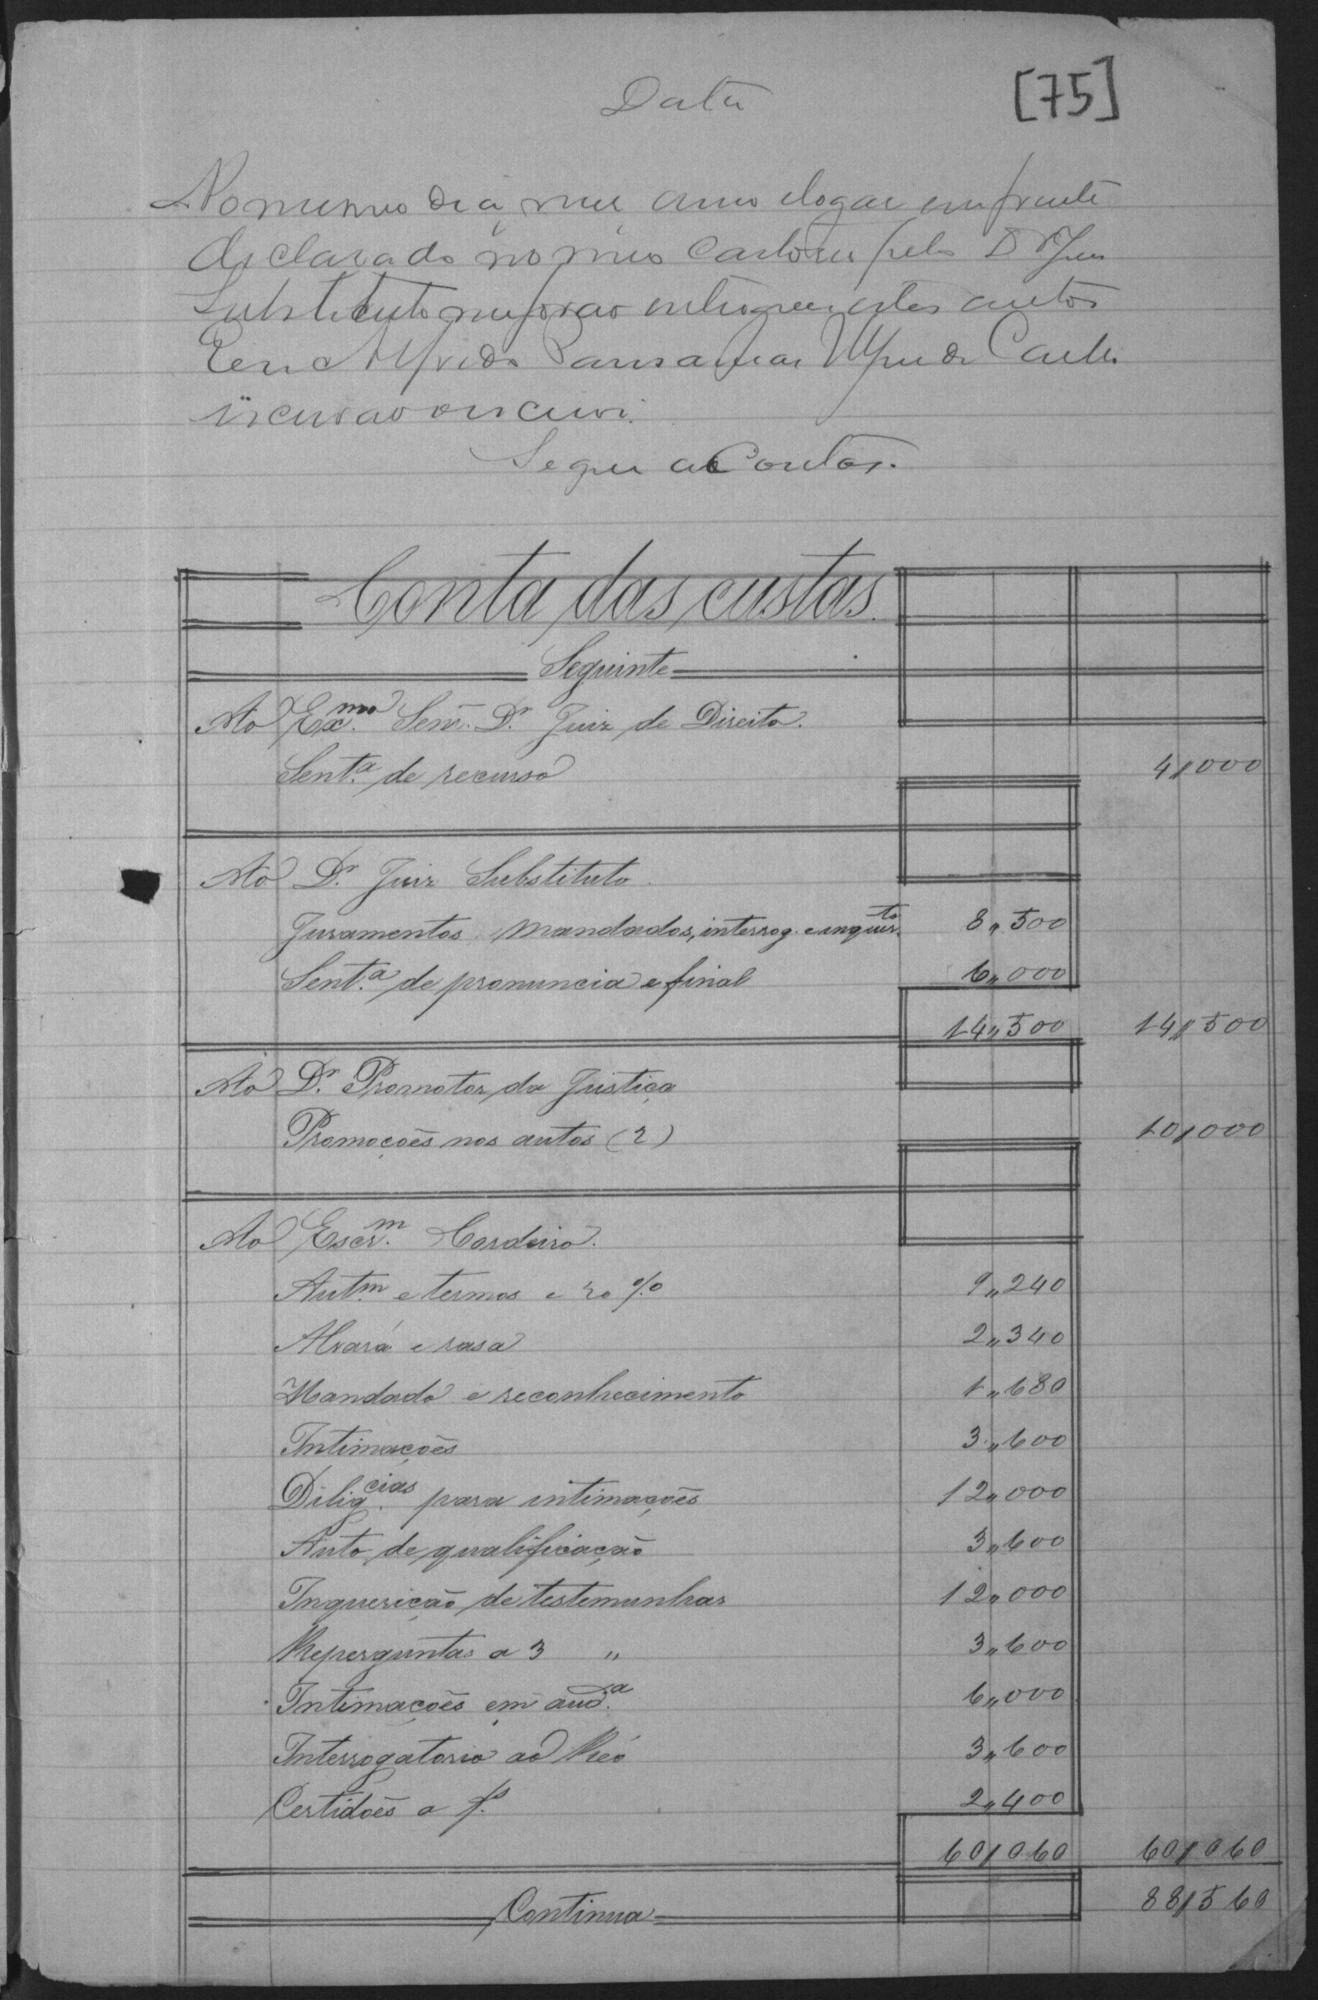 Data
[75]
No mesmo dia, mez anno e logar em frente
declarado no meu Cartorio pelo Dr Juiz
Substituto me forão entregues estes autos
Eu Alfredo
escrivão o escrevi.
Segue as Contas.
Conta das custas.
Seguinte
Ao Exmo. Senr. Dr. Juiz de Direito.
Sent.a de recurso 4,000
Ao Dr. Juiz Substituto.
Juramentos, mandados, interrog. e inquer.to 8,,500
Sent.a de pronuncia e final 6,,000
14,,500 14,,500
Ao Dr. Promotor da Justiça
Promoções nos autos (2) 10,000
Ao Escr.m Cordeiro.
Aut.m e termos e 20 % 9,,240
Alvará e rasa 2,,340
Mandado e reconhecimento 1,,680
Intimações 3,,600
Dilig.cias para intimações 12,,000
Auto de qualificação 3,,600
Inquerição de testemunhas 12,,000
Reperguntas a 3 " 3,,600
Intimações em aud.a 6,,000
Interrogatorio ao Réo 3,,600
Certidões a f.s 2,,400
60,060 60,060
Continua 88,560